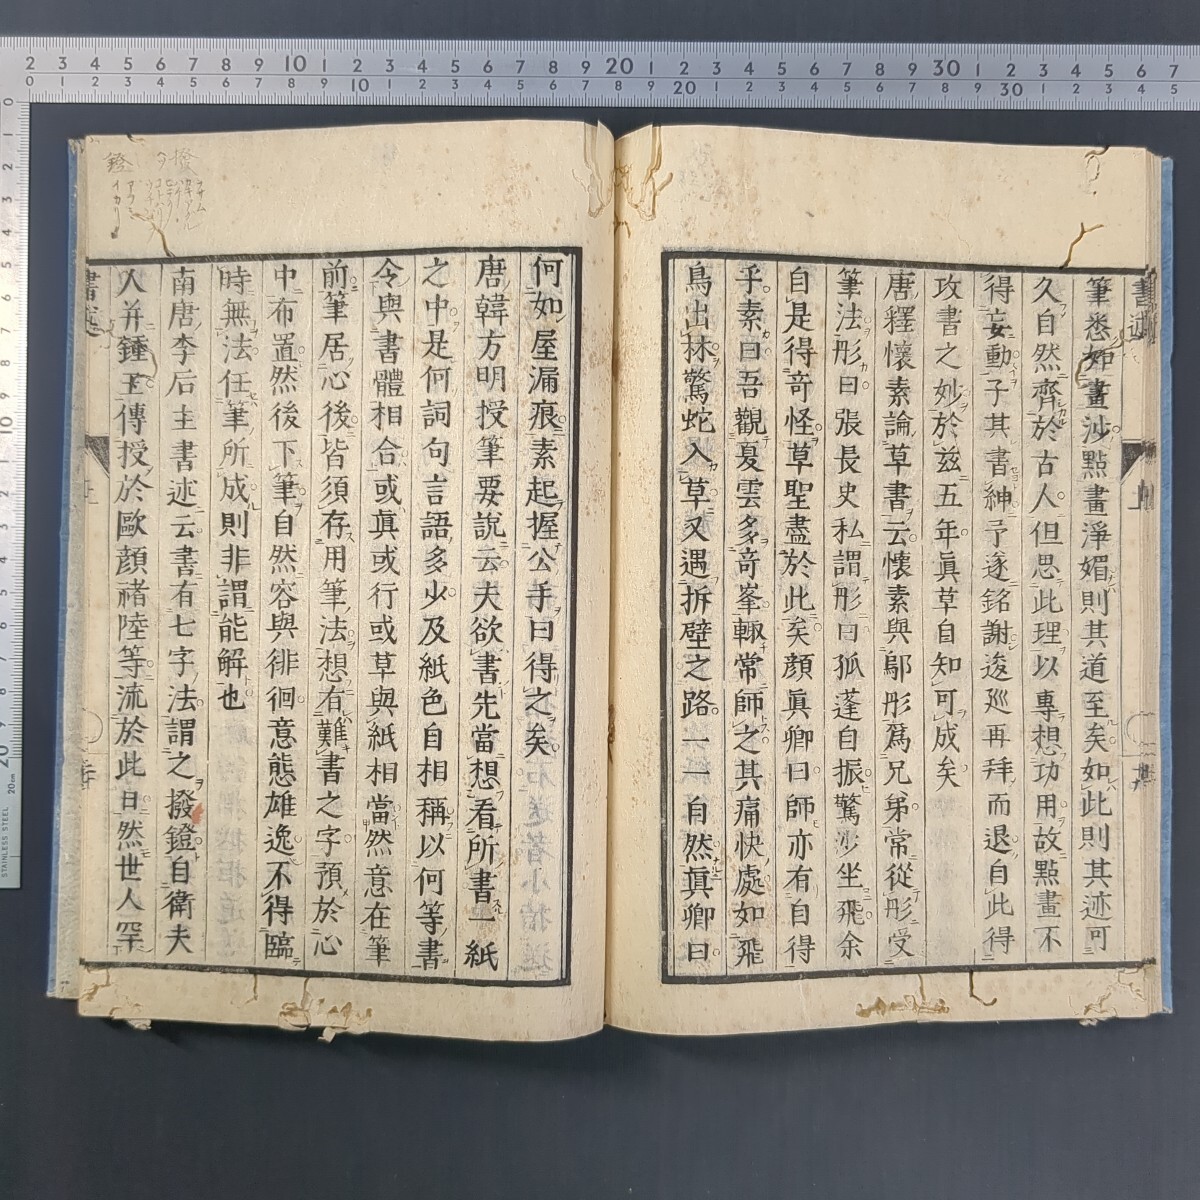 筆悉如畫沙點畫淨媚則其道至矣如此則其迹可
久自然齊於古人但思此理以專想功用故點畫不
得妄動子其書紳予遂銘謝逡巡再拜而退自此得
攻書之妙於茲五年眞草自知可成矣
唐釋懷素論草書云懷素與鄔彤爲兄弟常從彤受
筆法彤曰張長史私謂彤曰孤蓬自振驚沙坐飛余
自是得奇怪草聖盡於此矣顏眞卿曰師亦有自得
乎素曰吾觀夏雲多奇峯輙常師之其痛快處如飛
鳥出林驚蛇入草又遇拆壁之路一一自然眞卿曰
何如屋漏痕素起握公手曰得之矣
唐韓方明授筆要說云夫欲書先當想看所書一紙
之中是何詞句言語多少及紙色自相稱以何等書
令與書體相合或眞或行或草與紙相當然意在筆
前筆居心後皆須存用筆法想有難書之字預於心
中布置然後下筆自然容與徘徊意態雄逸不得臨
時無法任筆所成則非謂能解也
南唐李后主書述云書有七字法謂之撥鐙自衛夫
人并鍾王傳授於歐顏禇陸等流於此日然世人罕
書述
鐙
イカリ
アフミ